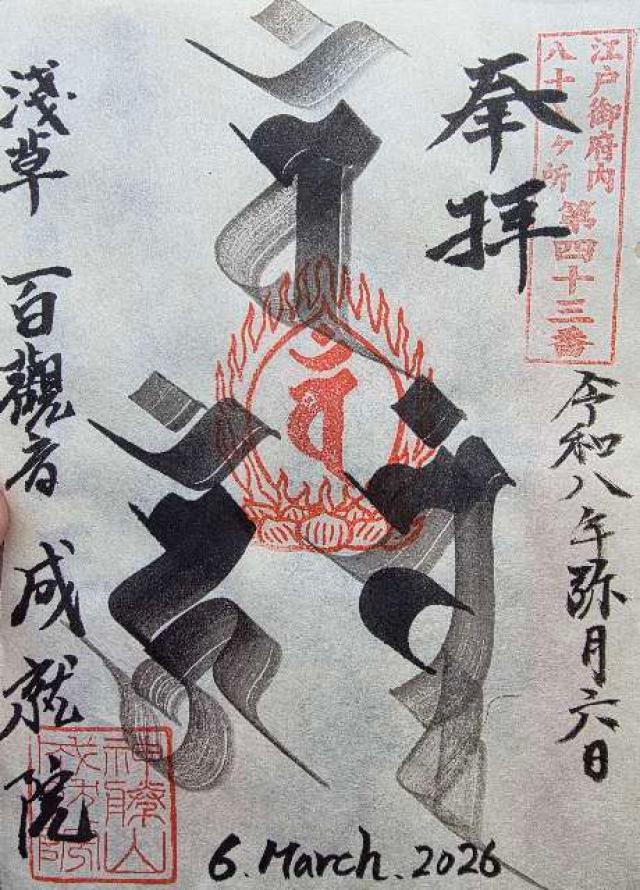 江戸御府内
八十八ヶ所
第四十三番
奉拝
令和八年弥月六日
淺草 百觀音 成就院
神勝山
成就院
6. March. 2026